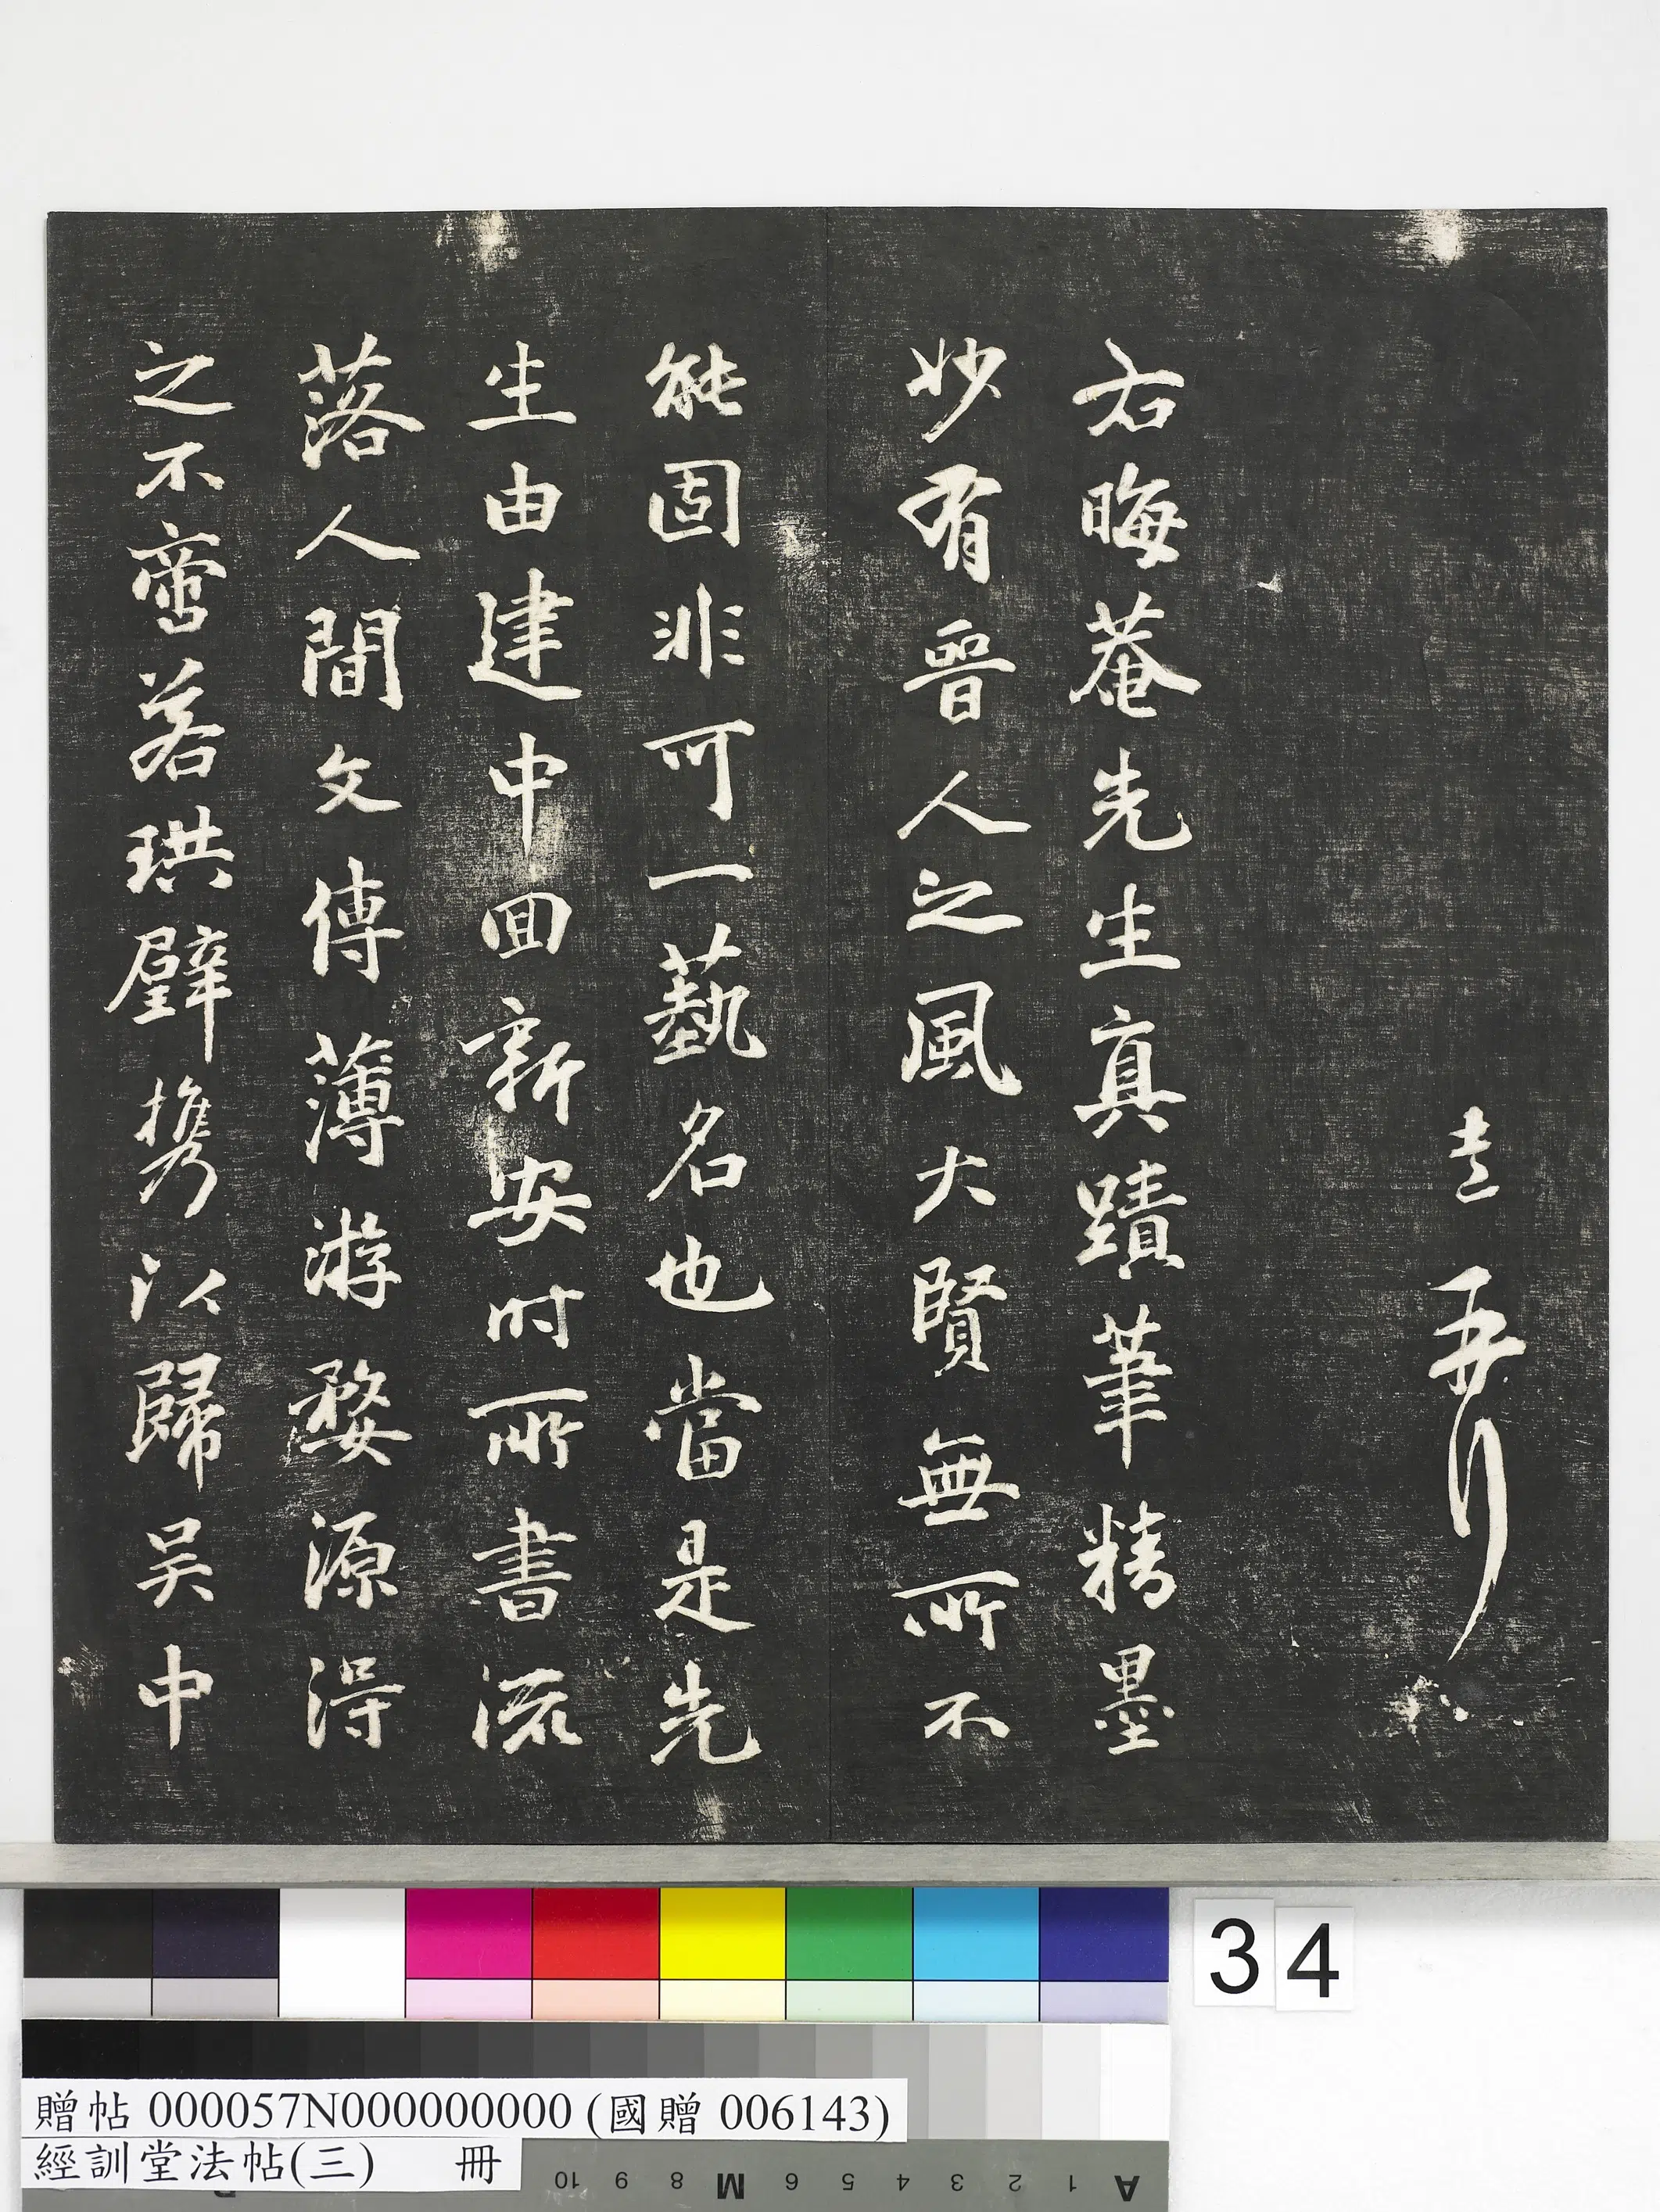 右晦菴先生真蹟筆精墨
妙有晉人之風大賢無所不
能固非可一藝名也當是先
生由建中回新安時所書流
落人間文傳薄游婺源得
之不啻若珙璧携以歸吴中
34
贈帖 000057N000000000 (國贈 006143)
經訓堂法帖(三) 冊
10 9 8 M 6 5 4 3 2 1 A